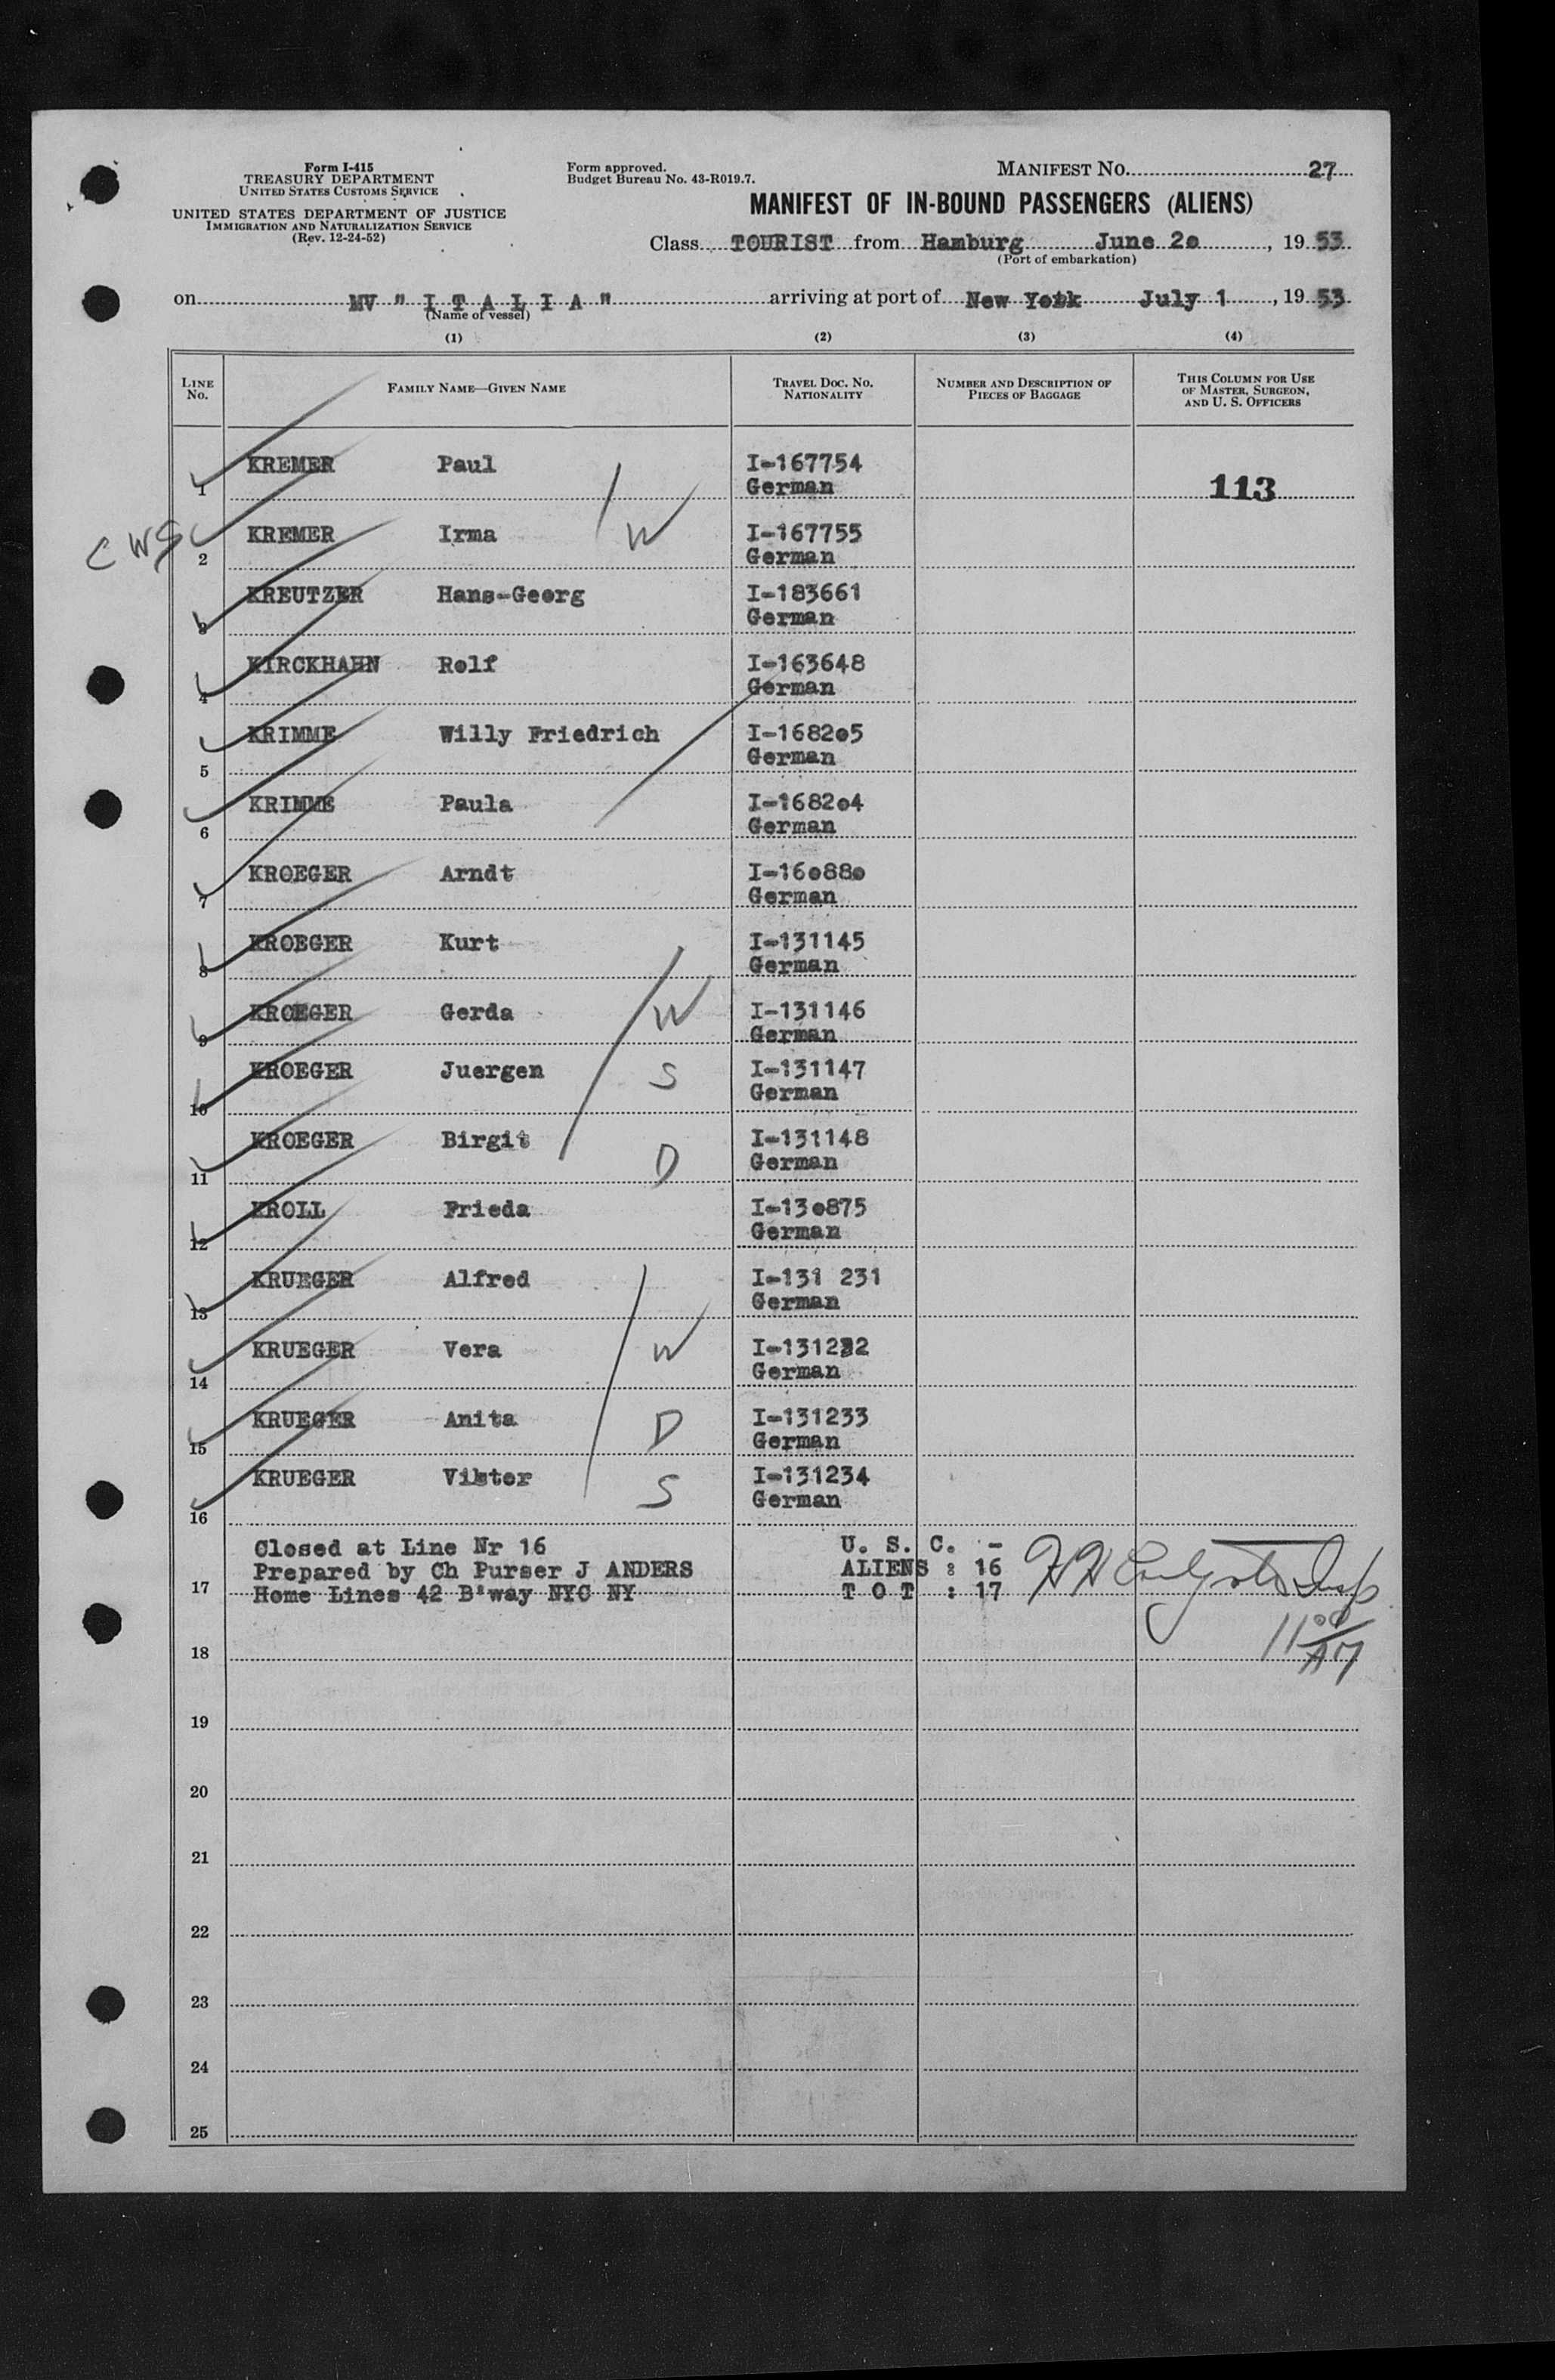 Form I-415
TREASURY DEPARTMENT
UNITED STATES CUSTOMS SERVICE
UNITED STATES DEPARTMENT OF JUSTICE
IMMIGRATION AND NATURALIZATION SERVICE
(Rev. 12-24-52)
Form approved.
Budget Bureau No. 43-R019.7.
MANIFEST NO. 27
MANIFEST OF IN-BOUND PASSENGERS (ALIENS)
Class TOURIST from Hamburg June 2o, 19 53
(Port of embarkation)
on MV " I T A L I A " arriving at port of New York July 1, 19 53
(Name of vessel)
(1) (2) (3) (4)
LINE No. FAMILY NAME—GIVEN NAME TRAVEL DOC. NO. NATIONALITY NUMBER AND DESCRIPTION OF PIECES OF BAGGAGE THIS COLUMN FOR USE OF MASTER, SURGEON, AND U. S. OFFICERS
1 KREMER Paul I-167754
German 113
2 KREMER Irma W I-167755
German
3 KREUTZER Hans-Georg I-183661
German
4 KIRCKHAHN Rolf I-163648
German
5 KRIMME Willy Friedrich I-1682o5
German
6 KRIMME Paula I-1682o4
German
7 KROEGER Arndt I-16o88o
German
8 KROEGER Kurt I-131145
German
9 KROEGER Gerda W I-131146
German
10 KROEGER Juergen S I-131147
German
11 KROEGER Birgit D I-131148
German
12 KROLL Frieda I-13o875
German
13 KRUEGER Alfred I-131 231
German
14 KRUEGER Vera W I-131232
German
15 KRUEGER Anita D I-131233
German
16 KRUEGER S I-131234
German
Closed at Line Nr 16 U. S. C. -
Prepared by Ch Purser J ANDERS ALIENS : 16
17 Home Lines 42 B'way NYC NY T O T : 17
11 00 AM
18
19
20
21
22
23
24
25